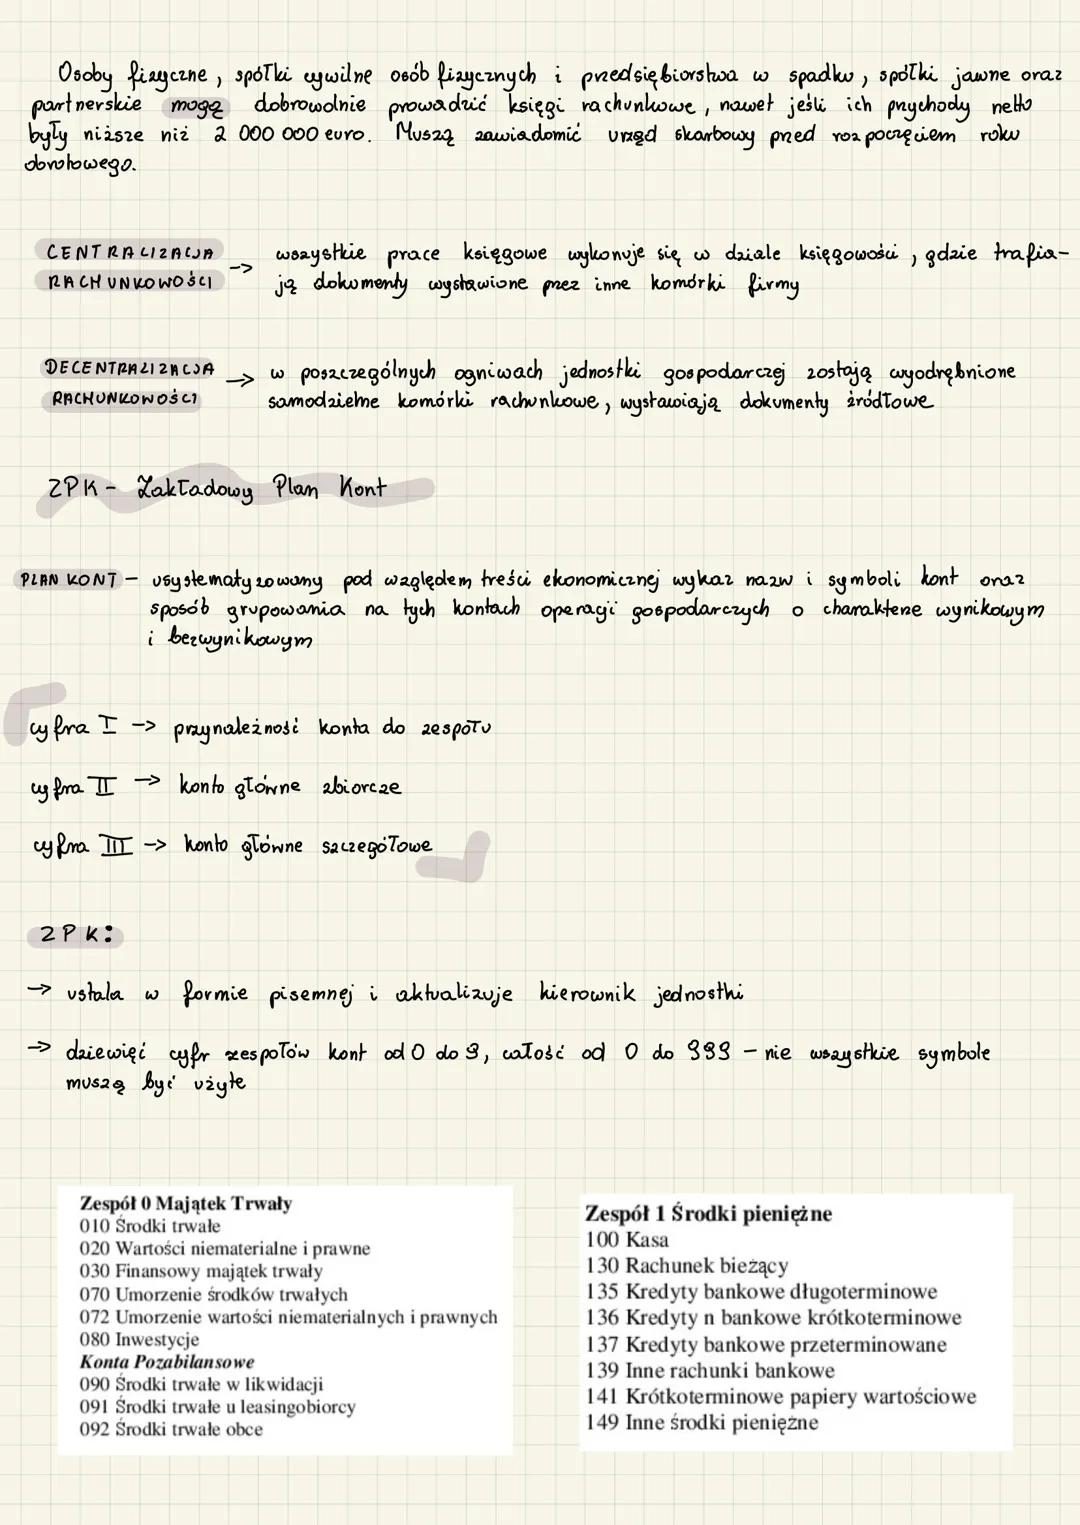 Osoby fizyczne, spółki cywilne osób fizycznych i przedsiębiorstwa w spadku, spółki jawne oraz
partnerskie mogą dobrowolnie prowadzić księgi rachunkowe, nawet jeśli ich przychody netto
były niższe niż 2 000 000 euro. Muszą zawiadomić urząd skarbowy przed rozpoczęciem roku
obrotowego.
CENTRALIZACJA RACHUNKOWOŚCI -> wszystkie prace księgowe wykonuje się w dziale księgowości, gdzie trafia-
ją dokumenty wystawione przez inne komórki firmy
DECENTRALIZACJA RACHUNKOWOŚCI -> w poszczególnych ogniwach jednostki gospodarczej zostają wyodrębnione
samodzielne komórki rachunkowe, wystawiają dokumenty źródłowe
ZPK - Zakładowy Plan Kont
PLAN KONT - usystematyzowany pod względem treści ekonomicznej wykaz nazw i symboli kont oraz
sposób grupowania na tych kontach operacji gospodarczych o charakterze wynikowym
i bezwynikowym
cyfra I -> przynależność konta do zespołu
cyfra II -> konto główne zbiorcze
cyfra III -> konto główne szczegółowe
ZPK:
-> ustala w formie pisemnej i aktualizuje kierownik jednostki
-> dziewięć cyfr zespołów kont od 0 do 9, całość od 0 do 999 - nie wszystkie symbole
muszą być użyte
Zespół 0 Majątek Trwały
010 Środki trwałe
020 Wartości niematerialne i prawne
030 Finansowy majątek trwały
070 Umorzenie środków trwałych
072 Umorzenie wartości niematerialnych i prawnych
080 Inwestycje
Konta Pozabilansowe
090 Środki trwałe w likwidacji
091 Środki trwałe u leasingobiorcy
092 Środki trwałe obce
Zespół 1 Środki pieniężne
100 Kasa
130 Rachunek bieżący
135 Kredyty bankowe długoterminowe
136 Kredyty n bankowe krótkoterminowe
137 Kredyty bankowe przeterminowane
139 Inne rachunki bankowe
141 Krótkoterminowe papiery wartościowe
149 Inne środki pieniężne